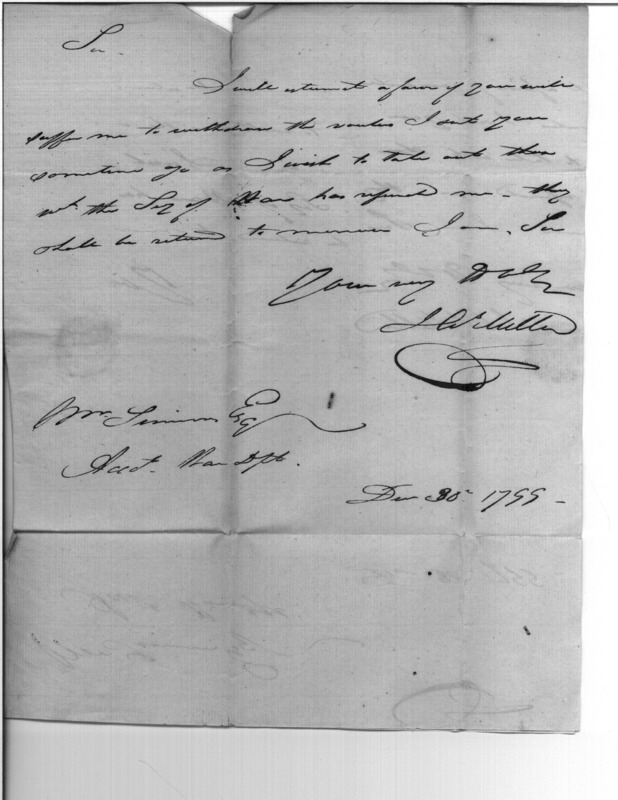 Sir
I will esteem it a favor if you will
suffer me to withdraw the vouchers I sent you
sometime go as I wish to take out those
wh. the Sey of War has refused me - they
shall be returned to morrow I am, Sir
Your very
J
Wm Simmons Esq
Acct. War Dpt.
Dec 30 1799 -